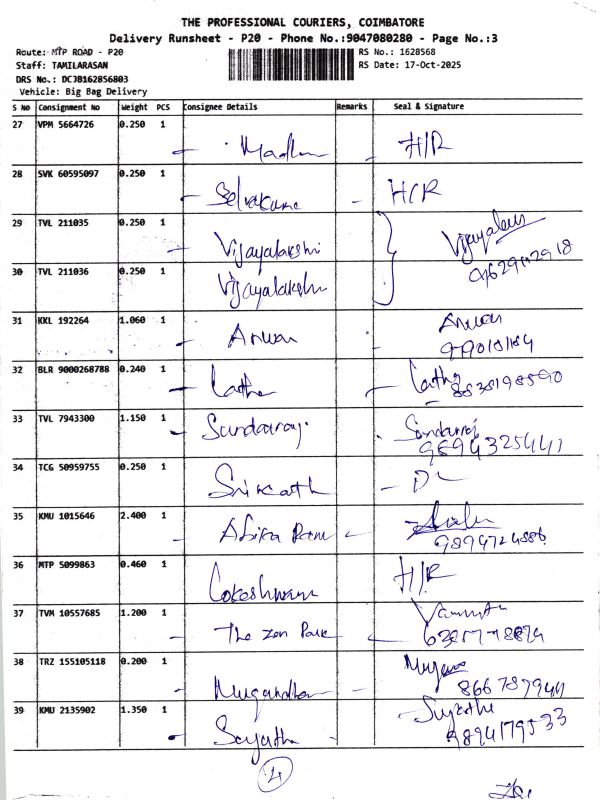 THE PROFESSIONAL COURIERS, COIMBATORE
Delivery Runsheet - P20 - Phone No.:9047080280 - Page No.:3
Route: MTP ROAD - P20 RS No.: 1628568
Staff: TAMILARASAN RS Date: 17-Oct-2025
DRS No.: DCJB162856803
Vehicle: Big Bag Delivery
S No Consignment No Weight PCS Consignee Details Remarks Seal & Signature
27 VPM 5664726 0.250 1 Madhu H/R
28 SVK 60595097 0.250 1 Selvakumar H/R
29 TVL 211035 0.250 1 Vijayalakshi
30 TVL 211036 0.250 1 Vijayalakshi
31 KKL 192264 1.060 1 Anwar Anwar
32 BLR 9000268788 0.240 1 8838198590
33 TVL 7943300 1.150 1 Sundarraj Sundarraj 9694325441
34 TCG 50959755 0.250 1 Srikanth
35 KMU 1015646 2.400 1
36 MTP 5099863 0.460 1 Lokeshwari H/R
37 TVM 10557685 1.200 1 The Zen Park
38 TRZ 155105118 0.200 1
39 KMU 2135902 1.350 1 Sujatha Sujatha 9894179533
4